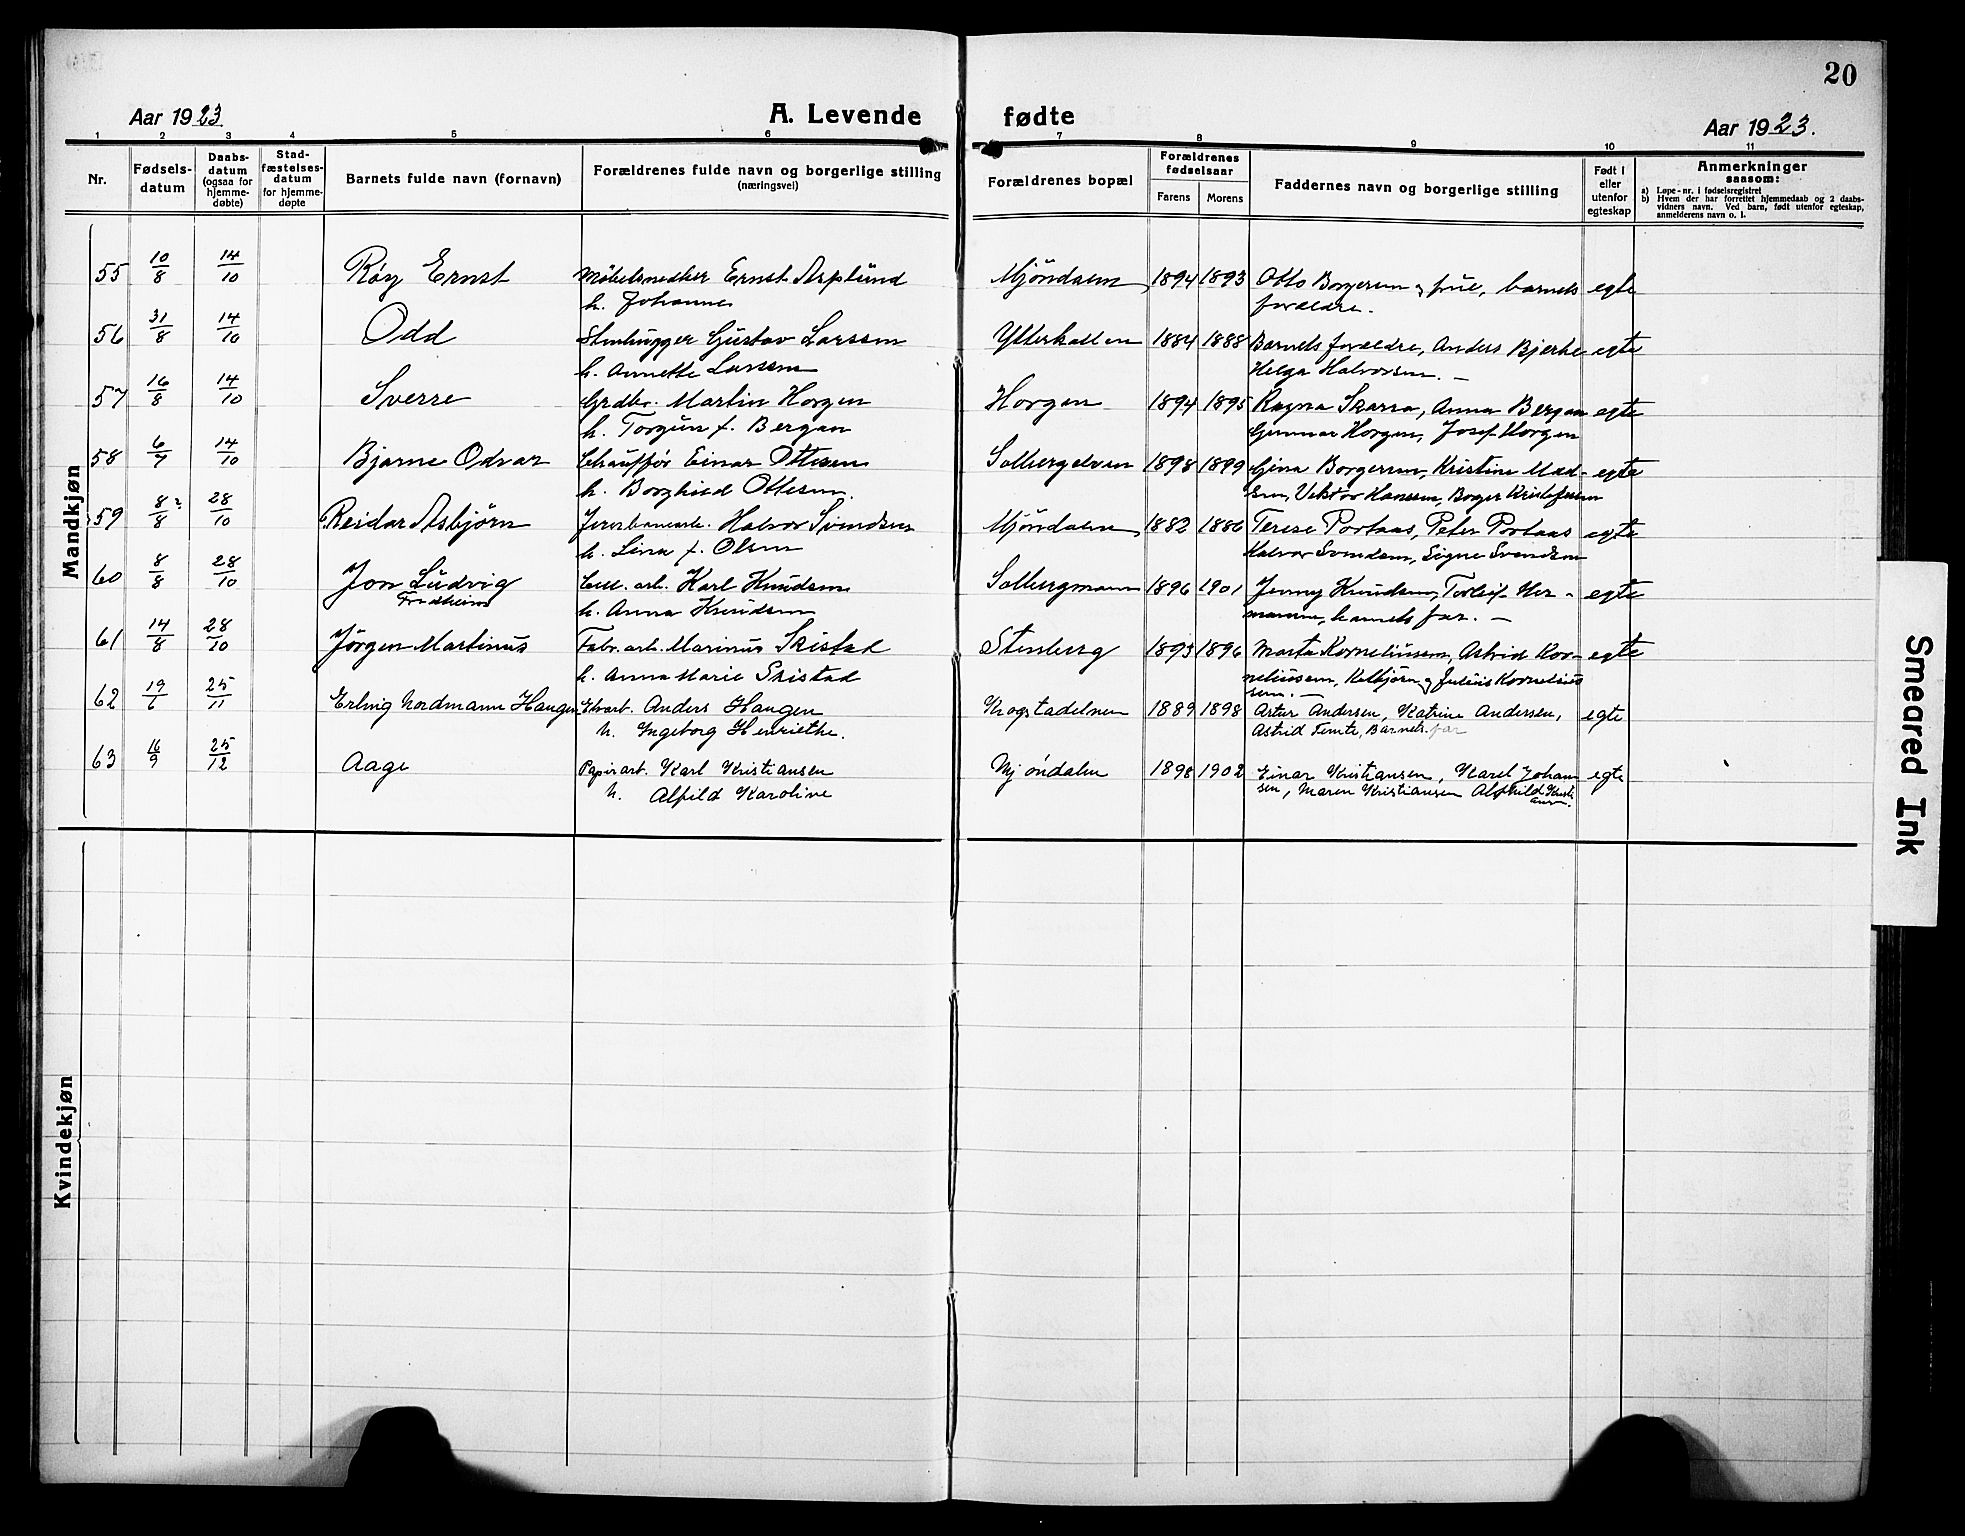 20
Aar 1923
A. Levende fødte
Aar 1923.
1 2 3 4 5 6 7 8 9 10 11
Nr.
Fødsels-
datum
Daabs-
datum
(ogsaa for
hjemme-
døbte)
Stad-
fæstelses-
datum
for hjemme-
døpte
Barnets fulde navn (fornavn)
Forældrenes fulde navn og borgerlige stilling
(næringsvei)
Forældrenes bopæl
Forældrenes
fødselsaar
Farens Morens
Faddernes navn og borgerlige stilling
Født i
eller
utenfor
egteskap
Anmerkninger
saasom:
a) Løpe-nr. i fødselsregistret
b) Hvem der har forrettet hjemmedaab og 2 daabs-
vidners navn. Ved barn, født utenfor egteskap,
anmelderens navn o. l.
Mandkjøn
55 10/8 14/10 Røy Ernst Møbelsnedker Ernst Asplund Mjöndalen 1894 1893 Otto Borgersen og frue, barnets egte
h. Johanne forældre.
56 31/8 14/10 Odd Stenhugger Gustav Larssen Ytterkollen 1884 1888 Barnets forældre, Anders Bjerke egte
h. Annette Larssen Helga Halvorsen. —
57 16/8 14/10 Sverre Grdbr. Martin Horgen Horgen 1894 1895 Ragna Skarra, Anna Bergan egte
h. Torgun f. Bergan Gunnar Horgen, Josef Horgen
58 6/7 14/10 Bjarne Odvar Chauffør Einar Ottesen Solbergelven 1898 1899 Gina Borgersen, Kristine Mad- egte
h. Borghild Ottesen. sen, Vektor Hanssen, Borger Kristofersen
59 8/8 ? 28/10 Reidar Asbjörn Jernbanearb. Halvor Svendsen Mjöndalen 1882 1886 Terese Portaas, Peter Portaas egte
h. Lina f. Olsen Halvor Svendsen, Signe Svendsen
60 8/8 28/10 Jon Ludvig Cell. arb. Karl Knudsen Solbergmoen 1896 1901 Jenny Knudsen, Torleif Her- egte
Fredheim h. Anna Knudsen manssen, barnets far. —
61 14/8 28/10 Jörgen Martinus Fabr. arb. Marinus Skistad Stenberg 1893 1896 Marta Korneliussen, Astrid Kor- egte
h. Anna Marie Skistad neliussen, Ketbjörn og Julius Kornelius
sen. —
62 19/6 25/11 Erling Nordmann Haugen Elvarb. Anders Haugen Krogstadelven 1889 1898 Artur Andersen, Katrine Andersen, egte
h. Ingeborg Henriethe. Astrid Temte, Barnets far
63 16/9 25/12 Aage Papirarb. Karl Kristiansen Mjöndalen 1898 1902 Einar Kristiansen, Karel Johan egte
h. Alfild Karoline sen, Maren Kristiansen Alfhild Kristi
ansen.
Kvindekjøn
Smeared Ink